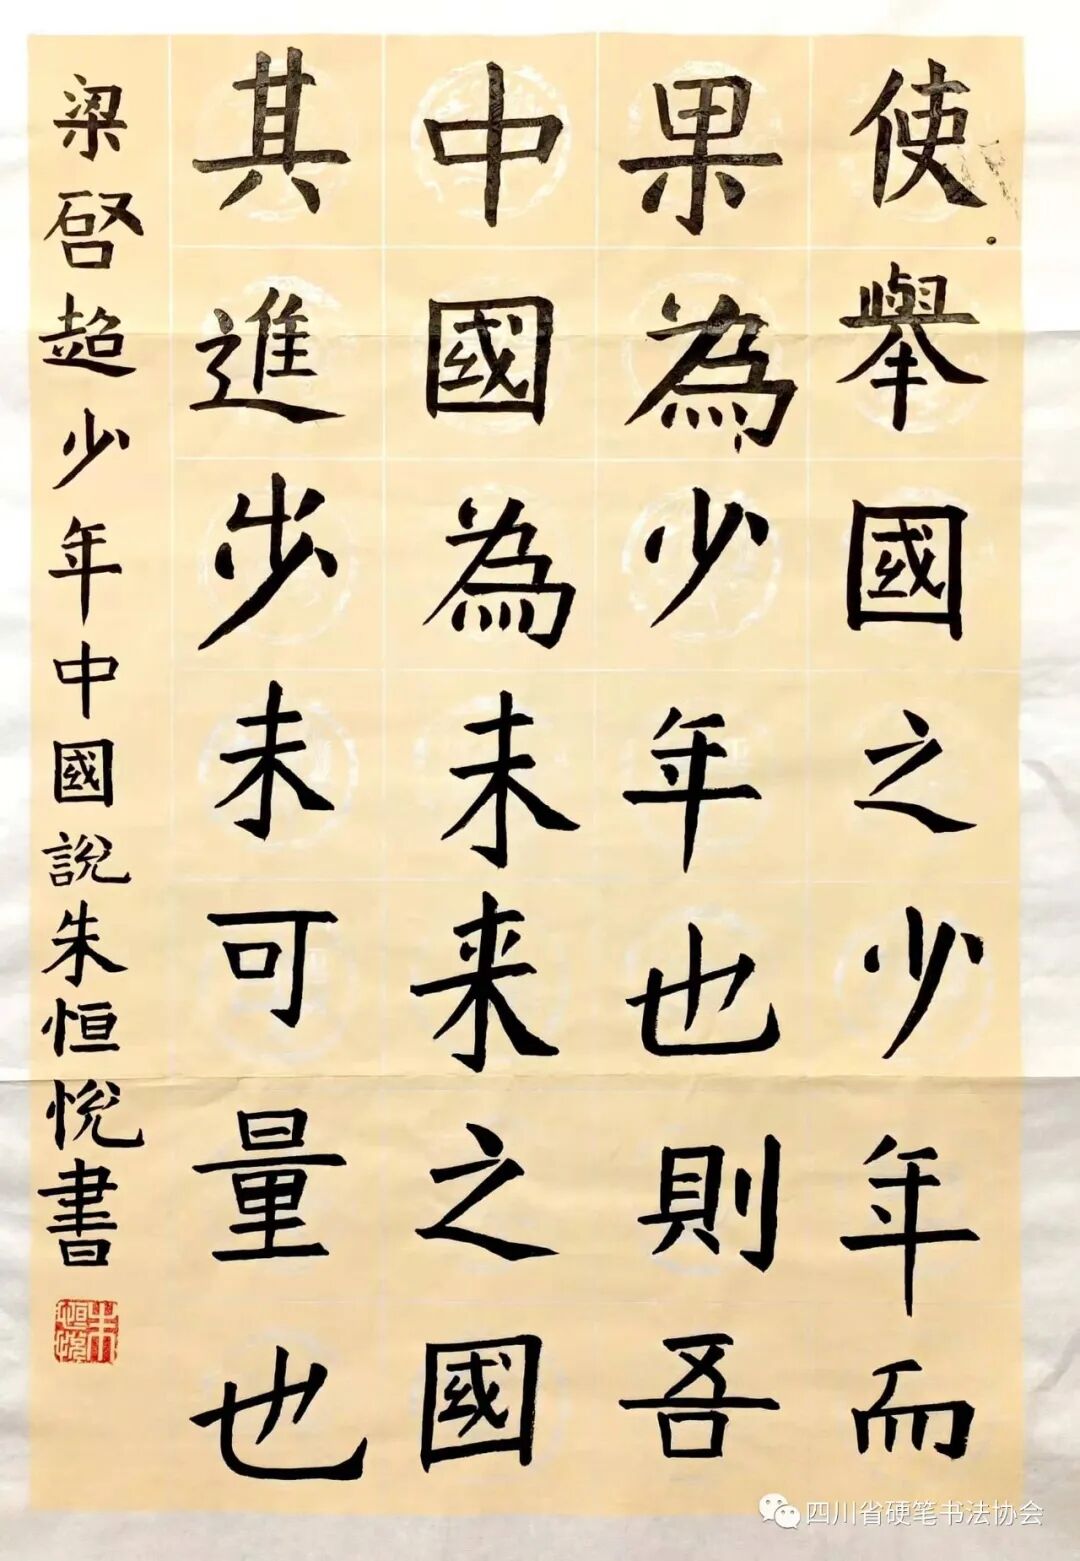 使舉國之少年而
果為少年也則吾
中國為未来之國
其進步未可量也
梁啓超少年中國說朱恒悅書
朱恒悅
四川省硬笔书法协会